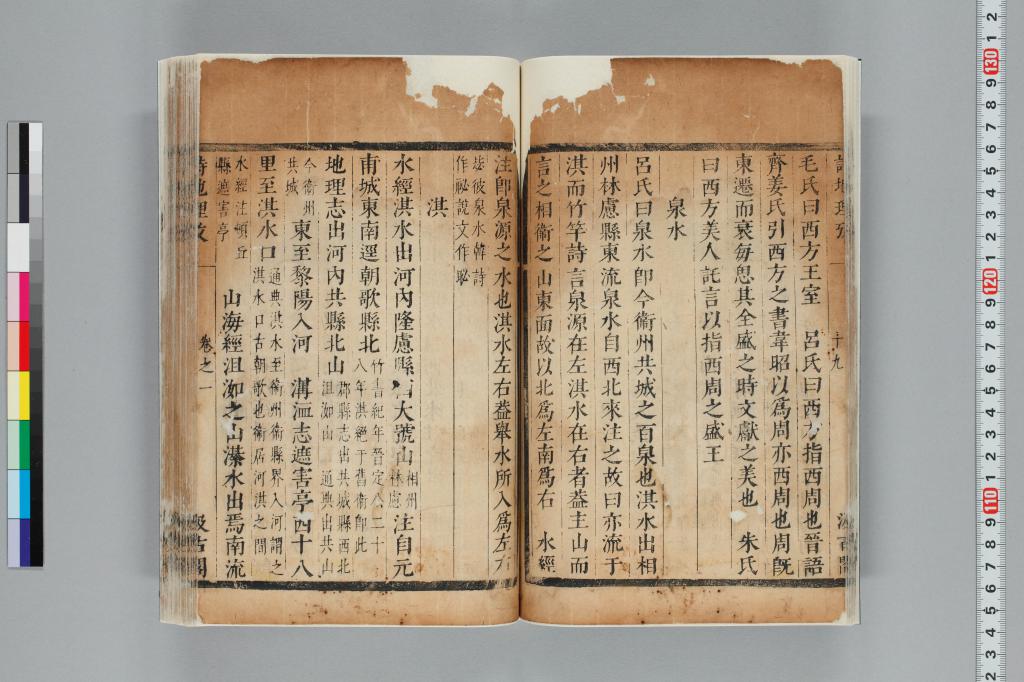 毛氏曰西方王室 呂氏曰西方指西周也晉語
齊姜氏引西方之書韋昭以爲周亦西周也周旣
東遷而衰每思其全盛之時文獻之美也 朱氏
曰西方美人託言以指西周之盛王
泉水
呂氏曰泉水卽今衞州共城之百泉也淇水出相
州林慮縣東流泉水自西北來注之故曰亦流于
淇而竹竿詩言泉源在左淇水在右者葢主山而
言之相衞之山東面故以北爲左南爲右 水經
注卽泉源之水也淇水左右葢舉水所入爲左右
毖彼泉水韓詩
作祕說文作䀣
淇
水經淇水出河內隆慮縣西大號山 相州
林慮 注自元
甫城東南逕朝歌縣北 竹書紀年晉定八二十
八年淇絕于舊衞卽此
地理志出河內共縣北山 郡縣志出共城縣西北
沮洳山 通典出共山
今衞州
共城 東至黎陽入河 溝洫志遮害亭西十八
里至淇水口 通典淇水至衞州衞縣界入河謂之
淇水口古朝歌也衞居河淇之間
水經注頓丘
縣遮害亭 山海經沮洳之山濝水出焉南流
詩地理攷
卷之一
汲古閣
十九